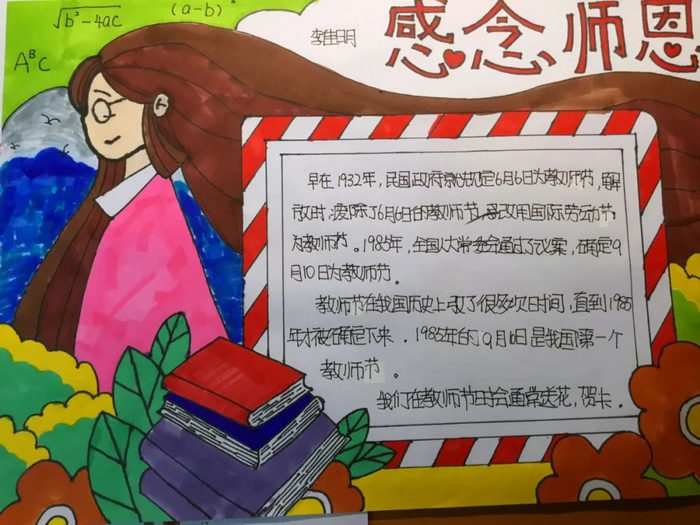 √b²-4ac
(a-b)²
A^B C
感念师恩
早在1932年，民国政府曾规定6月6日为教师节，解
放时，废除了6月6日的教师节，改用国际劳动节
为教师节。1985年，全国人大常委会通过了议案，确定9
月10日为教师节。
教师节在我国历史上改了很多次日时间，直到1985
年才被确定下来．1985年的9月10日是我国第一个
教师节。
我们在教师节时会通常送花，贺卡．